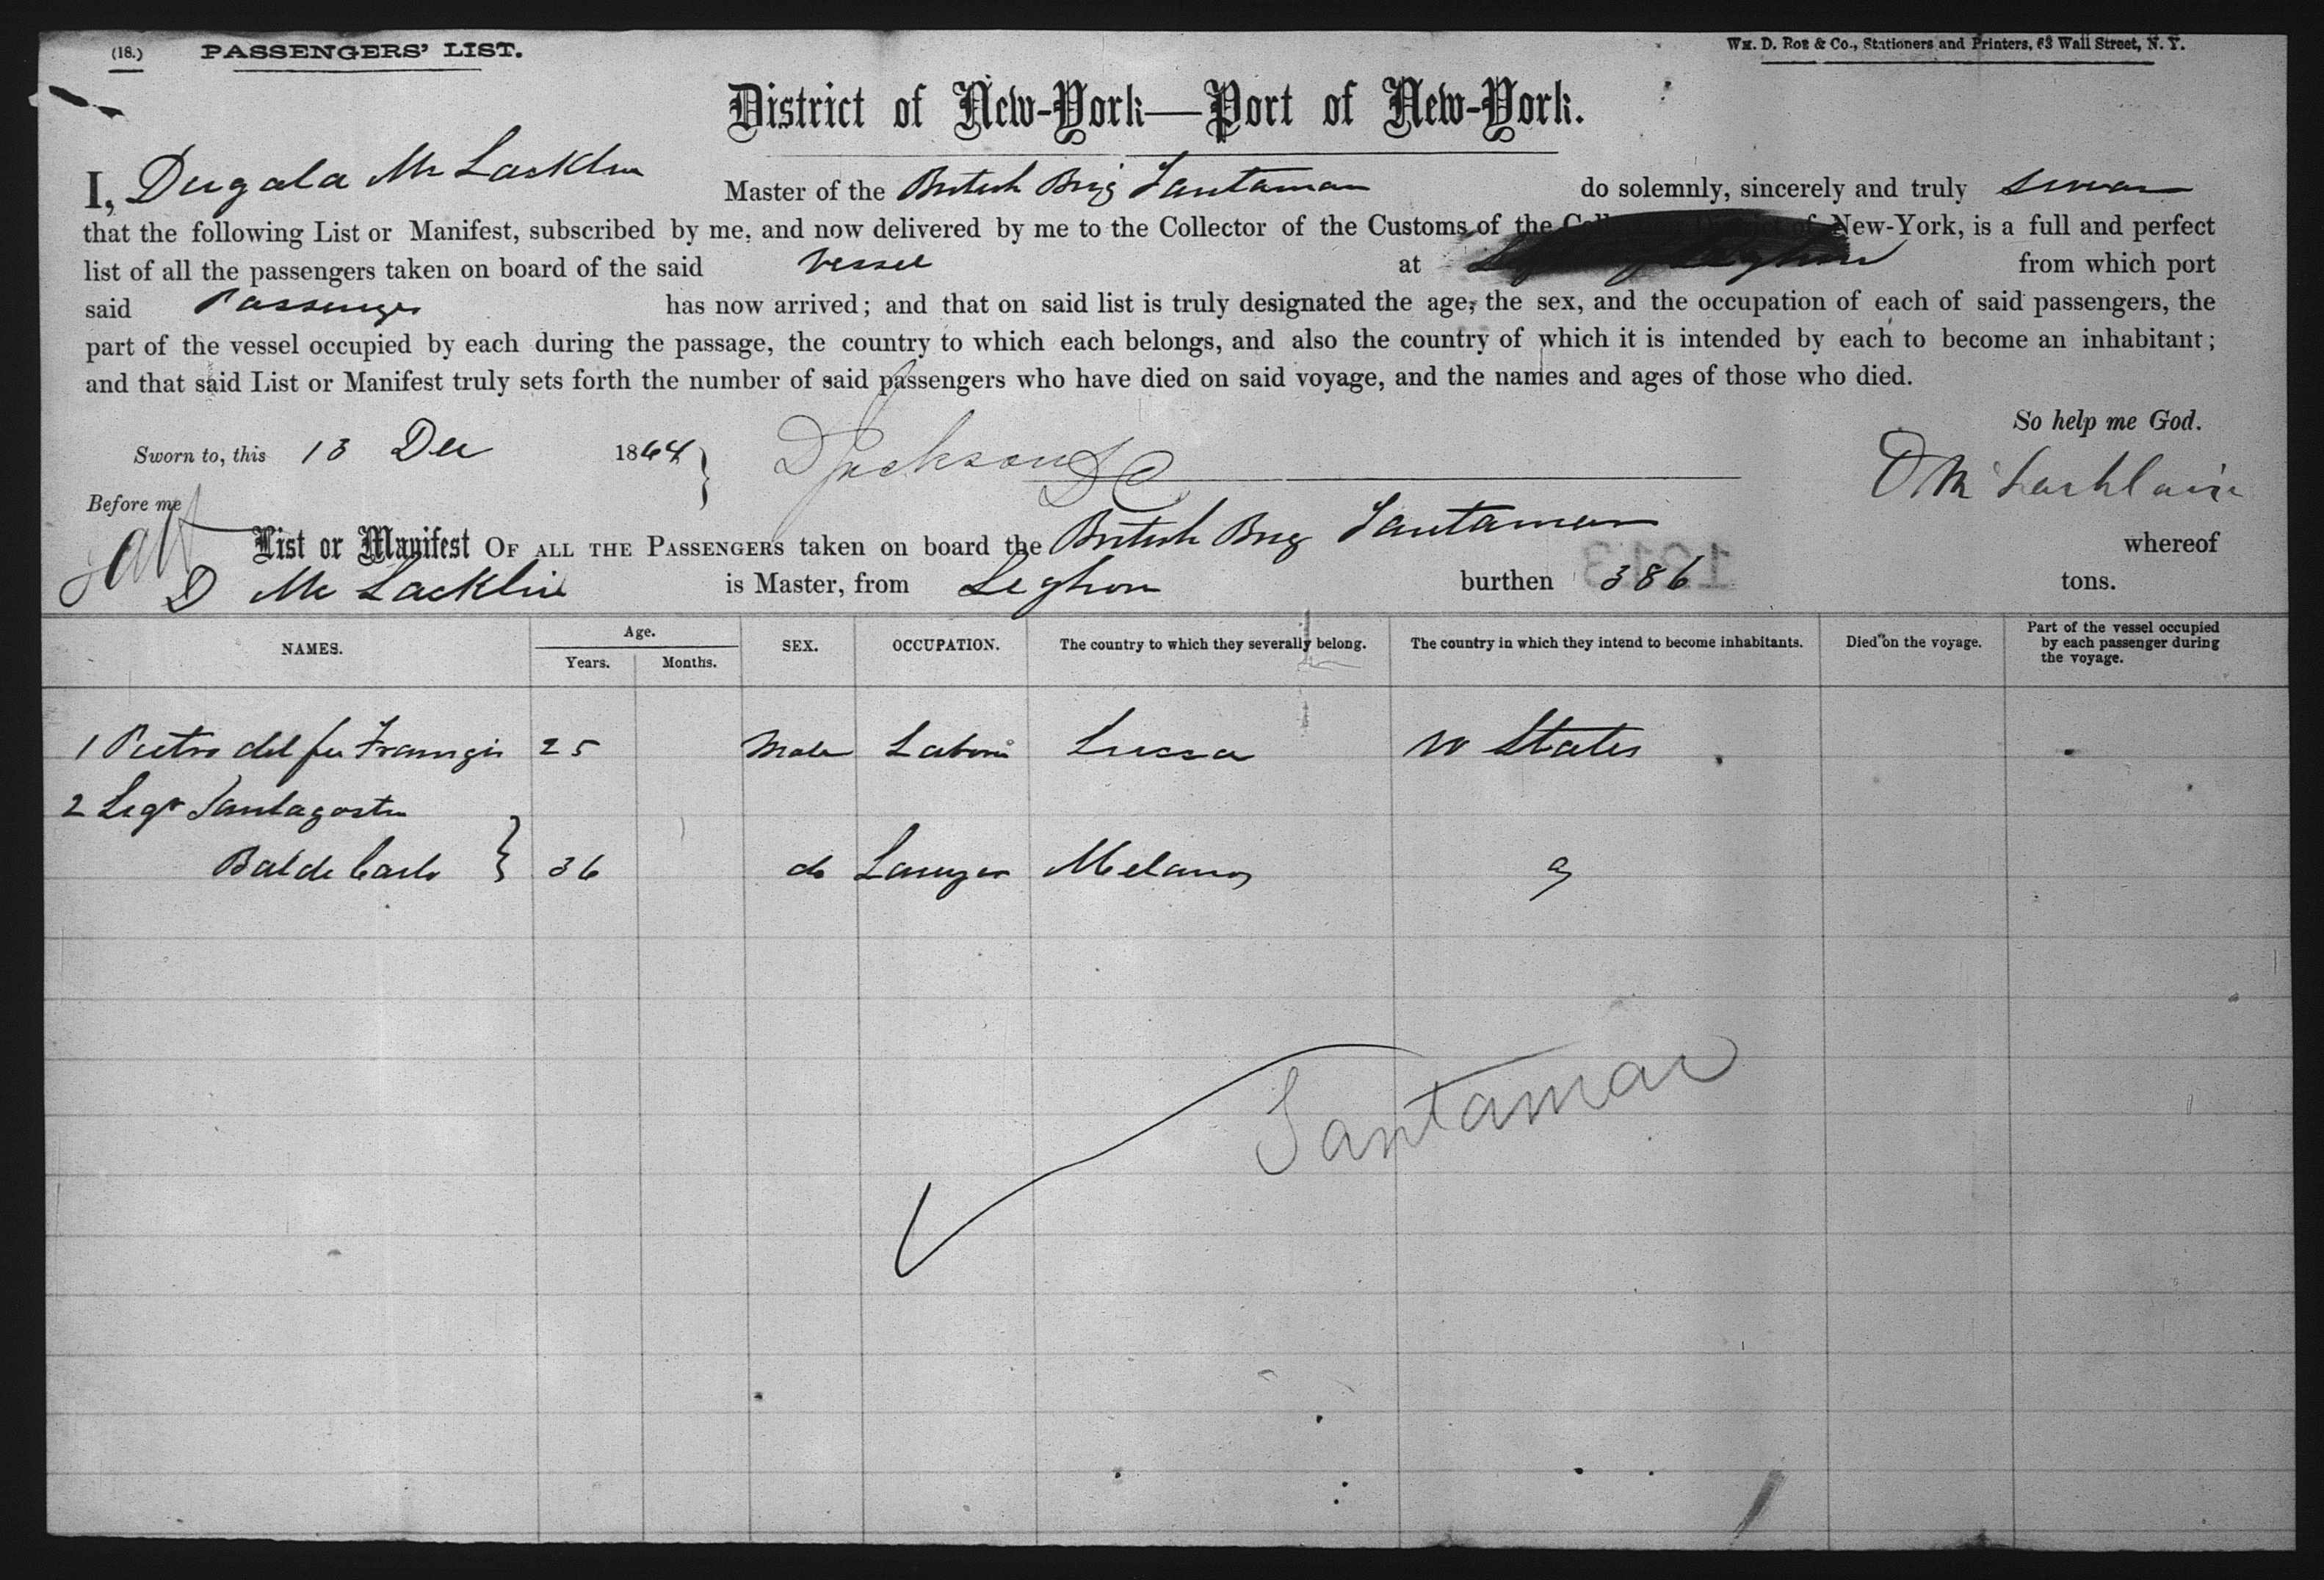 (18.) PASSENGERS' LIST.
Wm. D. Roe & Co., Stationers and Printers, 63 Wall Street, N. Y.
District of New-York—Port of New-York.
I, Dugala Mc Lacklin Master of the British Brig Santaman do solemnly, sincerely and truly swear
that the following List or Manifest, subscribed by me, and now delivered by me to the Collector of the Customs of the Collection District of New-York, is a full and perfect
list of all the passengers taken on board of the said vessel at Leghorn from which port
said Passenger has now arrived; and that on said list is truly designated the age, the sex, and the occupation of each of said passengers, the
part of the vessel occupied by each during the passage, the country to which each belongs, and also the country of which it is intended by each to become an inhabitant;
and that said List or Manifest truly sets forth the number of said passengers who have died on said voyage, and the names and ages of those who died.
So help me God.
Sworn to, this 13 Dec 1864 } D Jackson DC
D Mc Lachlain
Before me
List or Manifest OF ALL THE PASSENGERS taken on board the British Brig Santaman whereof
D Mc Lacklin is Master, from Leghorn burthen 386 tons.
NAMES. Age. Years. Months. SEX. OCCUPATION. The country to which they severally belong. The country in which they intend to become inhabitants. Died on the voyage. Part of the vessel occupied by each passenger during the voyage.
1 Pietro del fu 25 Male Labori Lucca States
2 Sigr Santagostin
Balde Carlo } 36 do Melano
Santaman